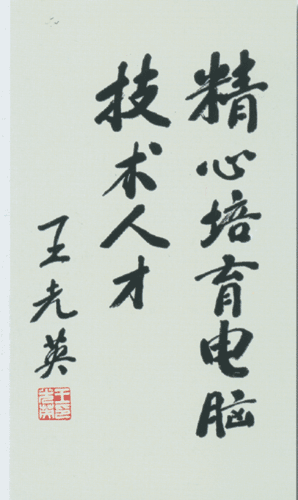 精心培育电脑
技术人才
王光英
王光英